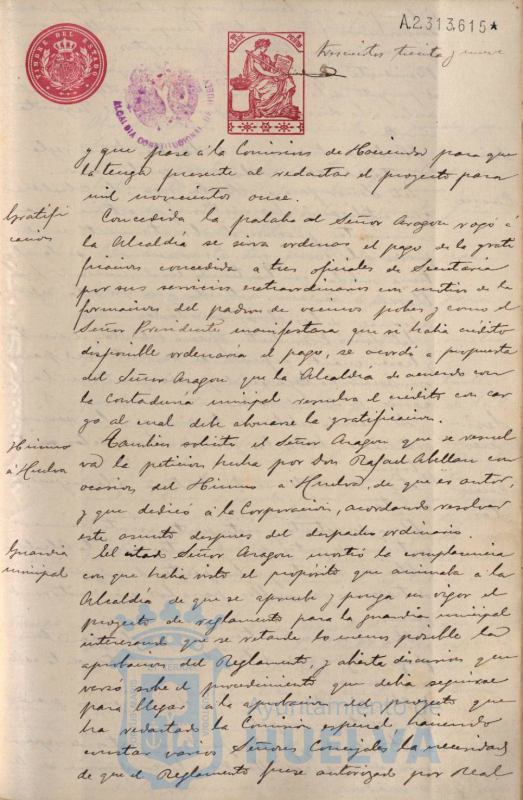 A.2.313.615*
TIMBRE DEL ESTADO
ALCALDÍA CONSTITUCIONAL DE HUELVA
trescientos treinta y nueve
y que pase á la Comision de Hacienda para que
la tenga presente al redactar el proyecto para
mil novecientos once.
Gratifi
cacion
Concedida la palabra al Señor Aragon rogó á
la Alcaldía se sirva ordenar el pago de la grati
ficacion concedida a tres oficiales de Secretaria
por sus servicios extraordinarios con motivo de la
formacion del padron de vecinos pobres y como el
Señor Presidente manifestara que si habia crédito
disponible ordenaria el pago, se acordó a propuesta
del Señor Aragon que la Alcaldía de acuerdo con
la Contaduria municipal resuelva el crédito con car
go al cual debe abonarse la gratificacion.
Himno
á Huelva
Tambien solicitó el Señor Aragon que se resuel
va la peticion hecha por Don Rafael Abellan con
ocasion del Himno á Huelva, de que es autor,
y que dedicó á la Corporacion, acordando resolver
este asunto despues del despacho ordinario.
Guardia
municipal
El citado Señor Aragon mostró la complacencia
con que habia visto el propósito que animaba á la
Alcaldía de que se apruebe y ponga en vigor el
proyecto de reglamento para la guardia municipal
interesando que se retarde lo menos posible la
aprobacion del Reglamento, y abierta discusion que
versó sobre el procedimiento que debia seguirse
para llegar á la aprobacion del proyecto que
ha redactado la Comision especial haciendo
constar varios Señores Concejales la necesidad
de que el Reglamento fuese autorizado por Real
Ayuntamiento de
HUELVA